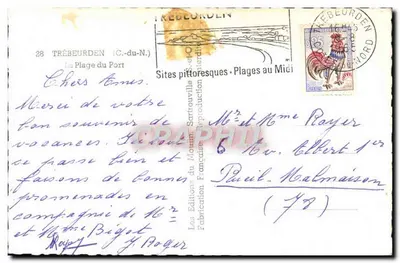 TREBEURDEN
Sites pittoresques - Plages au Midi
TREBEURDEN
NORD
28 TRÉBEURDEN (C.-du-N.)
La Plage du Port
Chers Amis.
Merci de votre
bon souvenir de
vacances. Ici tout
se passe bien et
faisons de bonnes
promenades en
compagnie de Mr
et Mme Bigot
J Roger
Les Editions du
Fabrication Française - Reproduction interdite
Mr et Mme Royer
6 Av. Albert 1er
Rueil Malmaison
(78)
PRCARTE